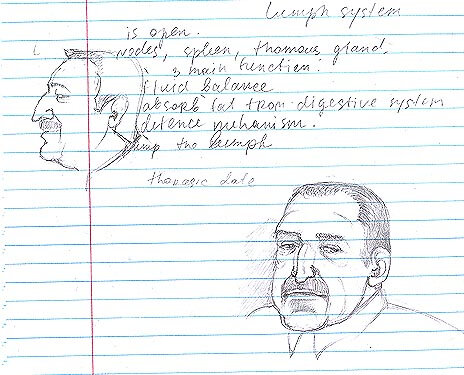 Lumph system
is open.
nodes, spleen, thomous gland.
3 main function:
fluid balance
absorb fat from digestive system
defence mehanism.
the Lumph
thorasic date